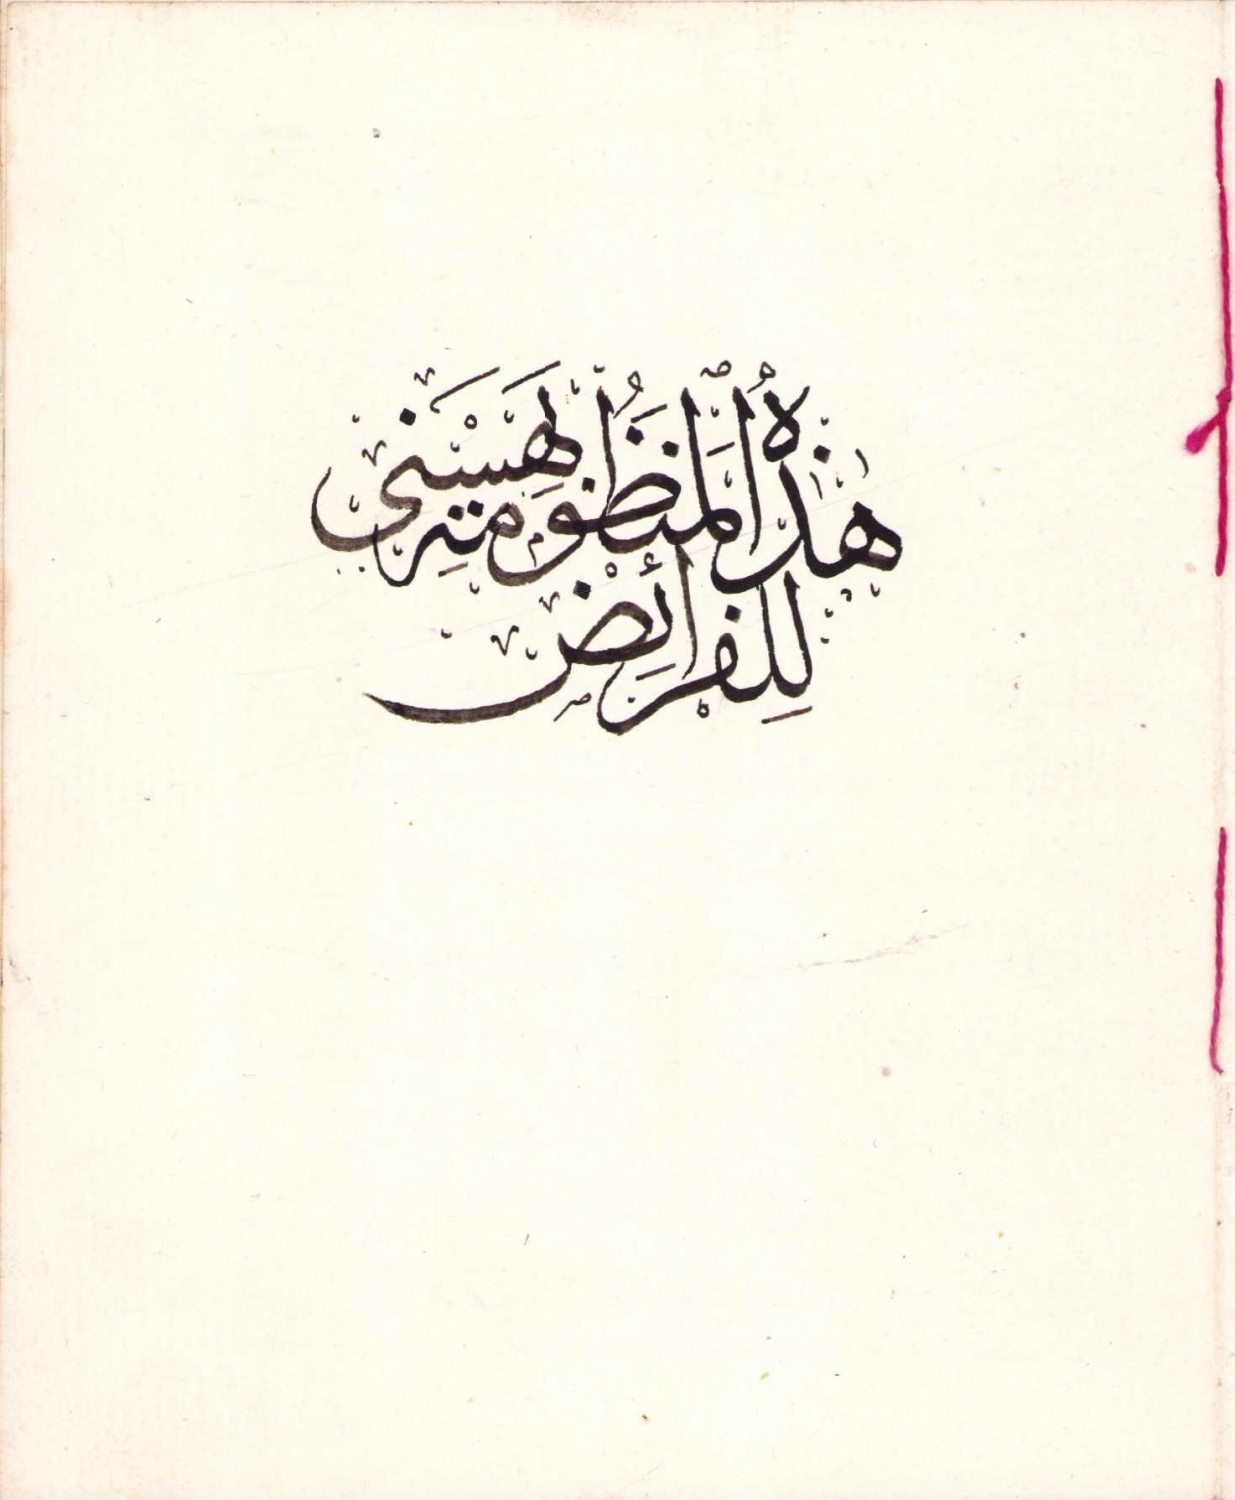 هذه المنظومة لهسني
للفرائض